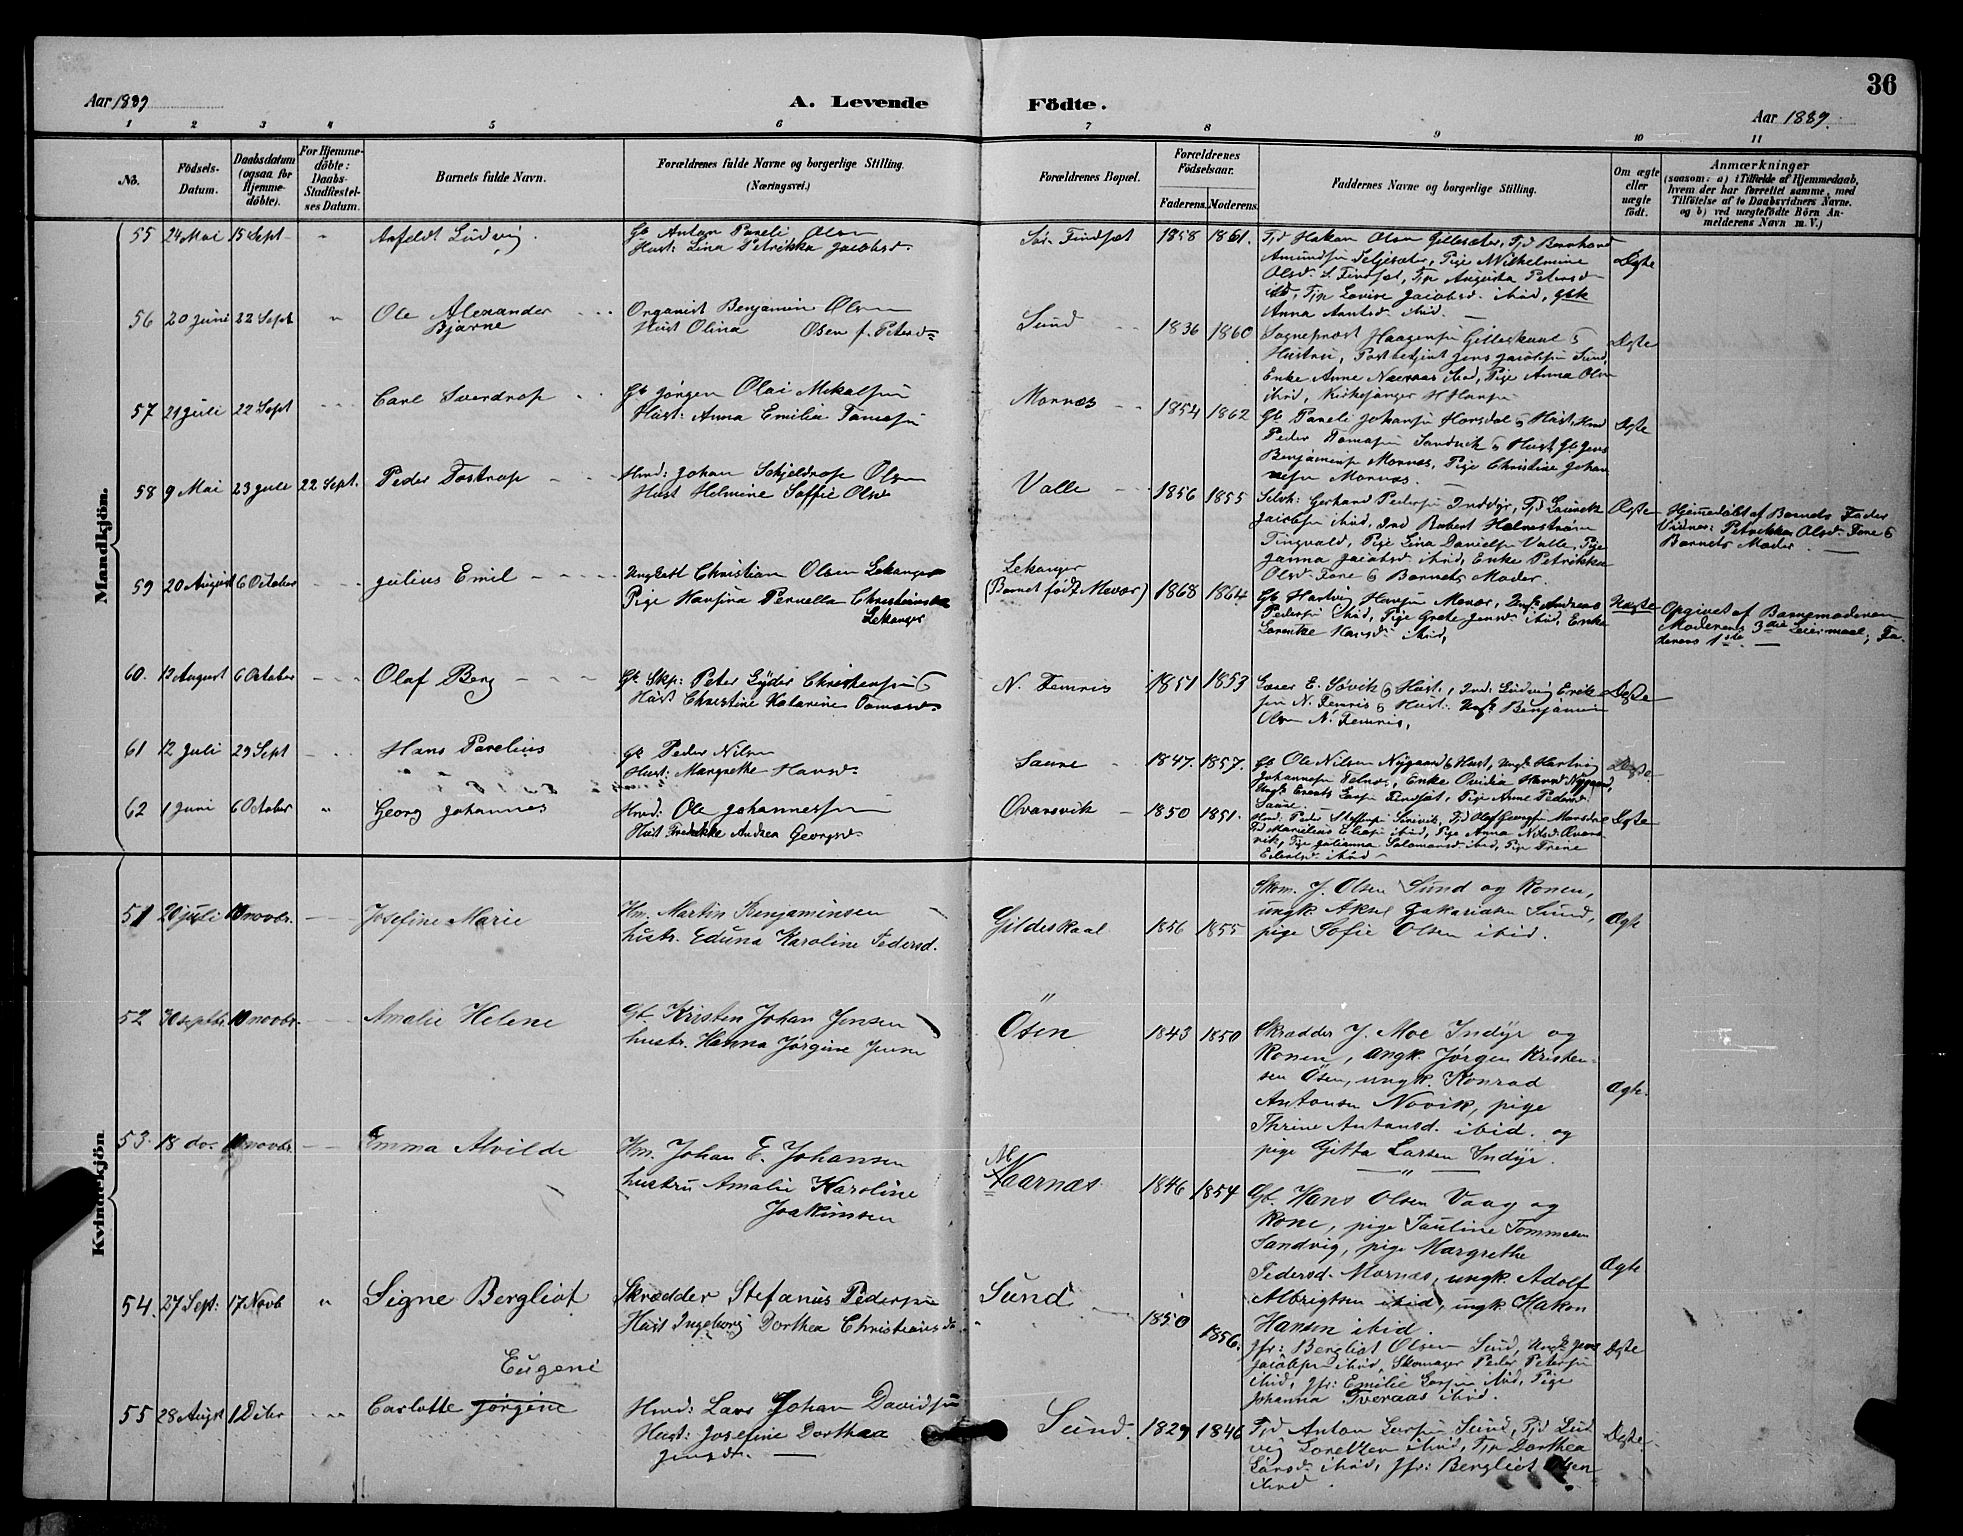 36
Aar 1889
A. Levende Födte.
Aar 1889.
1 2 3 4 5 6 7 8 9 10 11
No.
Födsels-
Datum.
Daabsdatum
(ogsaa for
Hjemme-
döbte).
For Hjemme-
döbte:
Daabs-
Stadfæstel-
ses Datum.
Barnets fulde Navn.
Forældrenes fulde Navne og borgerlige Stilling.
(Næringsvei.)
Forældrenes Bopæl.
Forældrenes
Födselsaar.
Faderens. Moderens.
Faddernes Navne og borgerlige Stilling.
Om ægte
eller
uægte
födt.
Anmærkninger
(saasom: a) i Tilfælde af Hjemmedaab,
hvem der har forrettet samme, med
Tilföielse af to Daabsvidners Navne.
og b) ved uægtefödte Börn An-
melderens Navn m. V.)
Mandkjön.
55 24 Mai 15 Sept " Asfeldt Ludvig.
Gb Anton Pareli Olsen
Hust: Lina Petrikka Jacobsd.
Sör. Findsæt 1858 1861.
Tjd Hakon Olsen Gillesæter, Tjd Bernhard
Amundsen Seljesæter, Pige Wilhelmine
Olsd. S. Findsæt, Tjp Augusta Petersd
ibd, Tjp Lovise Jacobsd. ibid, Gbk
Anna Antsd. ibid.
Ægte
56 20 Juni 22 Sept " Ole Alexander
Bjarne
Organist Benjamin Olsen
Hust Olina Olsen f. Petersd
Sund 1836 1860
Sogneprest Haagensen Gilleskaal &
Hustru, Postbetjent Jens Jacobsen Sund,
Enke Anne Næraas ibid, Pige Anna Olsen
ibid, Kirkesanger H Hansen
Ægte
57 21 Juli 22 Sept Carl Sverdrop
Gb Jørgen Olai Mikalsen
Hust: Anna Emilia Tomasen
Mornæs 1854 1862
Gb. Pareli Johansen Horsdal & Hust, Hmd
Peder Tomasen Sandvik & Hust, Gb. Jens
Benjaminsen Mornæs, Pige Christine Johan
nesen Mornæs.
Ægte
58 9 Mai 23 Juli 22 Sept. Peder Tostrop
Hmd: Johan Schjeldrop Olsen
Hust Helmine Soffie Olsd
Valle 1856 1855
Selvh: Gerhard Pedersen Inddyr, Tjd Lauritz
Jacobsen ibid, Ind Robert Holmstrøm
Tingvold, Pige Lina Danielsen Valle, Pige
Janna Jacobsd ibid, Enke Petrikka
Olsd. Fore & Barnets Moder.
Ægte
Hjemmedøbt af Barnets Fader
Vidner: Petrikka Olsd. Fore &
Barnets Moder.
59 20 August 6 October Julius Emil
Ungkarl Christian Olsen Lekanger
Pige Hansina Pernella Christensda
Lekanger
Lekanger
(Barnet født Mevær) 1868 1864
Gb Hartvig Hansen Mevær, Ungk Andreas
Pedersen ibid, Pige Grete Jensd. ibid, Enke
Lorentse Hansd. ibid,
Uægte
Opgivet af Barnemoderen
Moderens 3die Leiermaal, Fa-
derens 1ste.
60. 12 August 6 October Olaf Berg
Gb. Skp: Peter Gjøder Christensen &
Hust Christine Katarine Tomasd.
N. Femris 1851 1853
Gaser E. Søvik & Hust., Ind: Ludvig Erik-
sen N. Femris & Hust: Ungk. Benjamin
Olsen N. Femris,
Ægte
61 12 Juli 29 Sept Hans Parelius
Gb Peder Nilsen
Hust: Margrethe Hansd.
Saure 1847. 1857.
Gb Ole Nilsen Nygaard & Hust, Ungk Hartvig
Johannesen Telnes, Enke Ovidia Hansd. Nygaard,
Ungk Enoch Larsen Findsæt, Pige Anne Pedersd
Saure.
Ægte
62 1 Juni 6 October " Georg Johannes
Hmd: Ole Johannessen
Hust Fredrikke Andrea Georgsd.
Qvarsvik 1850 1851.
Hmd. Peder Steffensen Servik, Tjd Olaf Georgsen Marsdal
Tjd Marielius Eliasen ibid, Pige Anna Nilsd. Qvars-
vik, Pige Julianna Salomonsd. ibid, Pige Trine
Edertsd. ibid
Ægte
Kvindekjön
51 20 juli 10 novbr. Josefine Marie
Hm. Martin Benjaminsen
hustr. Eduna Karoline Pedersd.
Gildeskaal 1856 1855
Skom. J. Olsen Sund og Konen,
ungk. Aksel Zakariasen Sund,
pige Sofie Olsen ibid.
Ægte
52 30 septbr. 10 novbr. Amalie Helene
Gb. Kristen Johan Jensen
hustr. Hanna Jørgine Jensen
"
Osen 1843 1850
Skrædder J. Moe Indyr og
Konen, ungk. Jørgen Kristen-
sen Osen, ungk. Konrad
Antonsen Novik, pige
Thrine Antonsd. ibid. og
pige Gitta Larsen Indyr.
Ægte.
53. 18 do. 10 novbr. Emma Alvilde
Hm. Johan E. Johansen
hustru Amalie Karoline
Joakimsen
M
Naarnæs 1846 1854
Gb. Hans Olsen Vaag og
Kone, pige Pauline Tommesen
Sandvig, pige Margrethe
Pedersd. Mornæs, ungk. Adolf
Albrigtsen ibid, ungk. Hakon
Hansen ibid.
Ægte
54. 27 Sept: 17 Novb " Signe Bergliot
Skrædder Stefanus Pedersen
Hust Ingeborg Dorthea Christiansd
Sund 1850 1856.
Jfr: Bergliot Olsen Sund, Ungk Jens
Jacobsen ibid, Skomager Peder Petersen
ibid, Jfr: Emilie Larsen ibid, Pige
Johanna Tveraas ibid.
Ægte
Eugeni
55 28 Augst 1 Dcbr Carlotte Jörgine
Hmd: Lars Johan Davidsen
Hust: Josefine Dorthea
Jensdr.
Sund. 1829 1846
Tjd Anton Larsen Sund, Tjd Lud
vig Lorentzen ibid, Tjp Dorthea
Larsd. ibid, Jfr: Bergliot Olsen
ibid.
Ægte.